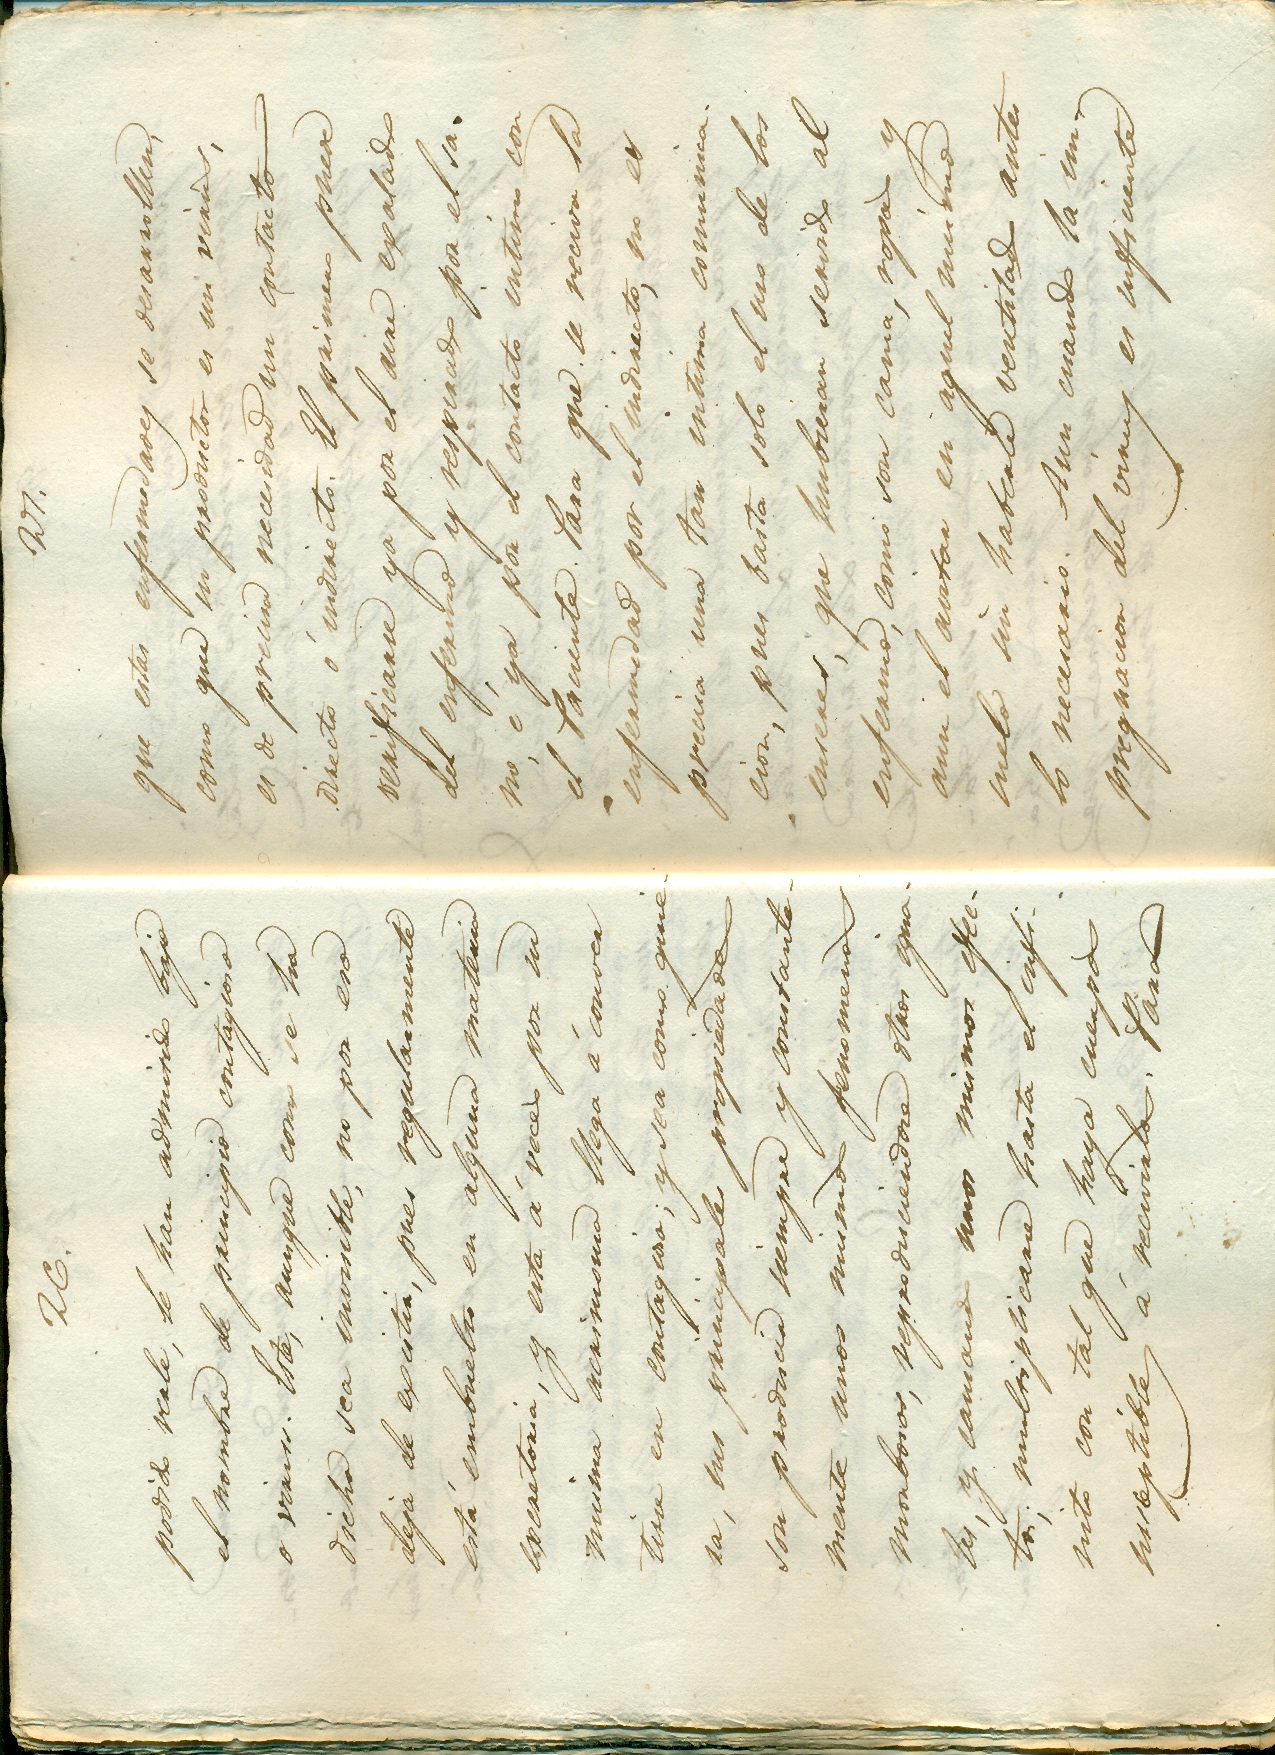 26.
podido verle, le han admitido bajo
el nombre de principio contagioso
o virus. Este, aunque como se ha
dicho sea invisible, no por eso
deja de existir, pues regularmente
está embuelto en alguna materia
escretoria, y esta á veces por su
misma acrimonia llega á conver
tirse en contagiosa; y sea como quie-
ra, sus principales propiedades
son producir siempre y constante-
mente unos mismos fenomenos
morbosos, reproduciendose otros igua-
les, y causando unos mismos efec-
tos; multiplicarse hasta el infi-
nito con tal que haya cuerpos
suseptibles á recivirlos. Para
27.
que estas enfermedades se desarrollen,
como que su productor es un virus,
es de precisa necesidad un contacto
directo ó indirecto. El primero puede
verificarse ya por el aire exalado
del enfermo y respirado por el sa-
no, é ya por el contacto intimo con
el Paciente. Para que se reciva la
enfermedad por el indirecto, no es
precisa una tan intima comunica-
cion, pues basta solo el uso de los
enseres, que hubieran servido al
enfermo, como son cama, ropas y
aun el avitar en aquel mismo
suelo sin haberle ventilado antes
lo necesario. Aun cuando la im-
pregnacion del virus es suficiente